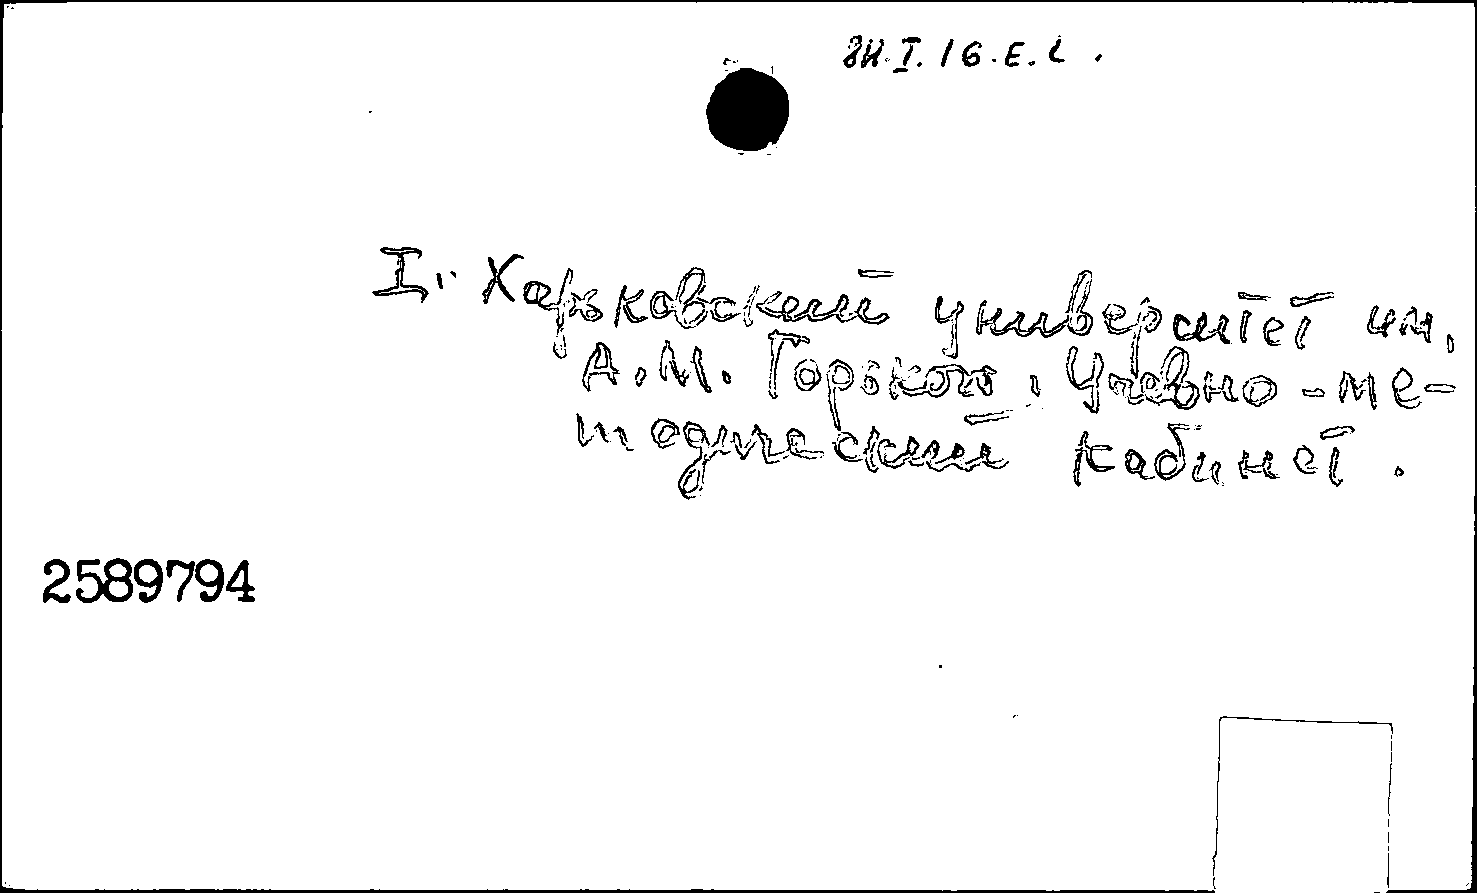 8Н.I.16.Е.2.
I. Харьковский университет им.
А.М. Горького. Учебно-ме-
тодический кабинет.
2589794